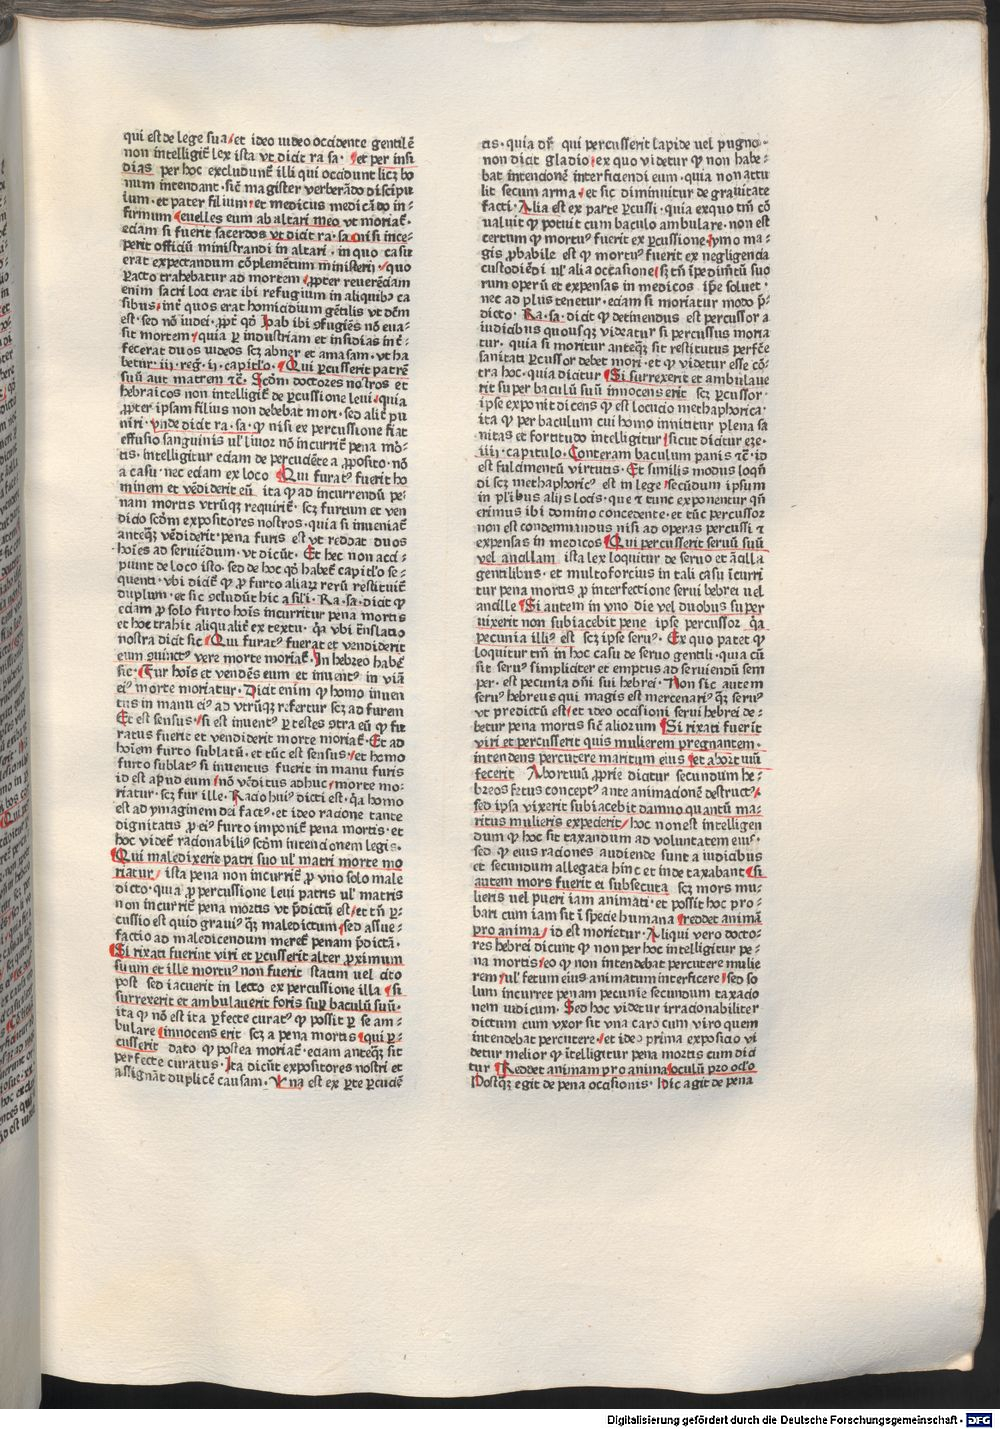 qui est de lege sua/et ideo iudeo occidente gentilē
non intelligit̄ lex ista vt dicit ra sa· et per insi
dias per hoc excludunt̄ illi qui occidunt licꝫ bo
num intendant· sic̄ magister verberādo discipu
lum· et pater filium· et medicus medicādo in-
firmum euelles eum ab altari meo vt moriat̄·
eciam si fuerit sacerdos vt dicit ra· sa· nisi ince-
perit officiū ministrandi in altari· in quo casu
erat expectandum cōplemētum ministerij· quo
ꝑacto trahebatur ad mortem ꝓpter reuerēciam
enim sacri loci erat ibi refugium in aliquibꝫ ca
sibus· int̄ quos erat homicidium gētilis vt dc̄m
est· sed nō iudei· ꝓpt̄ qd̄ Joab ibi ꝯfugiēs nō eua-
sit mortem· quia ꝑ industriam et insidias int̄-
fecerat duos iudeos scꝫ abner et amasam· vt ha
betur· iij· reg· ij· capitl̓o· Qui ꝑcusserit patrē
suū aut matrem ꝛc̄· Scd̄m doctores nostros et
hebraicos non intelligit̄ de ꝑcussione leui· quia
ꝓpter ipsam filius non debebat mori· sed alit̄ pu
niri· vnde dicit ra· sa· ꝙ nisi ex percussione fiat
effusio sanguinis ul̓ liuor nō incurrit̄ pena mō-
tis· intelligitur eciam de percuciēte a ꝓposito· nō
a casu· nec eciam ex ioco Qui furatꝰ fuerit ho
minem et vēdiderit eū ita ꝙ ad incurrendū pe-
nam mortis vtrūqꝫ requirit̄· scꝫ furtum et ven
dicio scd̄m expositores nostros· quia si inueniat̄
anteqꝫ vēdiderit· pena furis est vt reddat duos
hoīes ad seruiēdum· vt dicūt· Et hec non acci-
piunt de loco isto· sed de hoc qd̄ habet̄ capitl̓o se-
quenti· vbi dicit̄ ꝙ ꝓ furto aliaꝝ rerū restituit̄
duplum· et sic ꝯcludūt hic a sil̓i· Ra· sa· dicit ꝙ
eciam ꝓ solo furto hoīs incurritur pena mortis
et hoc trahit aliqualit̄ ex textu· qa vbi t̄nslatio
nostra dicit sic Qui furatꝰ fuerat et vendiderit
eum ꝯuinctꝰ vere morte moriat̄· In hebreo habet̄
sic· Fur hoīs et vendēs eum et inuentꝰ in viā
eiꝰ morte moriatur· Dicit enim ꝙ homo inuen
tus in manu eiꝰ ad vtrūqꝫ refertur scꝫ ad furem
Et est sensus· si est inuentꝰ ꝑ testes ꝯtra eū ꝙ fu
ratus fuerit et vendiderit morte moriat̄· Et ad
hoīem furto sublatū· et tūc est sensus· et homo
furto sublatꝰ si inuentus fuerit in manu furis
id est apud eum nō vēditus adhuc· morte mo-
riatur· scꝫ fur ille· Racio huiꝰ dicti est· qa homo
est ad ymaginem dei factꝰ· et ideo racione tante
dignitatis ꝓ eiꝰ furto imponit̄ pena mortis· et
hoc videt̄ racionabiliꝰ scd̄m intencionem legis·
Qui maledixerit patri suo ul̓ matri morte mo
riatur/ ista pena non incurrit̄ ꝓ vno solo male
dicto· quia ꝓ percussione leui patris ul̓ matris
non incurrit̄ pena mortis vt p̄dictū est· et tn̄ ꝑ-
cussio est quid grauiꝰ qꝫ maledictum· sed assue-
factio ad maledicendum meret̄ penam p̄dictā·
Si rixati fuerint viri et ꝑcusserit alter ꝓximum
suum et ille mortuꝰ non fuerit statim uel cito
post sed iacuerit in lecto ex percussione illa si
surrexerit et ambulauerit foris suꝑ baculū suū·
ita ꝙ nō est ita ꝑfecte curatꝰ ꝙ possit ꝑ se am-
bulare innocens erit scꝫ a pena mortis qui ꝑ-
cusserit dato ꝙ postea moriat̄· eciam anteqꝫ sit
perfecte curatus· Ita dicūt expositores nostri et
assignāt duplicē causam· Vna est ex ꝑte ꝑcuciē
tis· quia dr̄ qui percusserit lapide uel pugno·
non dicit gladio· ex quo videtur ꝙ non habe-
bat intencionē interficiendi eum· quia non attu
lit secum arma· et sic diminuitur de grauitate
facti· Alia est ex parte ꝑcussi· quia exquo tm̄ cō
ualuit ꝙ potuit cum baculo ambulare· non est
certum ꝙ mortuꝰ fuerit ex ꝑcussione ymo ma-
gis ꝓbabile est ꝙ mortuꝰ fuerit ex negligencia
custodiēdi ul̓ alia occasione· sꝫ tn̄ īpedimētū suo
rum operū et expensas in medicos ip̄e soluet·
nec ad plus tenetur· eciam si moriatur modo p̄-
dicto· Ra· sa· dicit ꝙ detinendus est percussor a
iudicibus quousqꝫ videatur si percussus moria
tur· quia si moritur anteqꝫ sit restitutus perfc̄e
sanitati ꝑcussor debet mori· et ꝙ videtur esse cō-
tra hoc· quia dicitur Si surrexerit et ambulaue
rit super baculū suū innocens erit scꝫ ꝑcussor·
ipse exponit dicens ꝙ est locucio methaphorica·
ita ꝙ per baculum cui homo innititur plena sa
nitas et fortitudo intelligitur sicut dicitur eze·
iiij· capitulo· Conteram baculum panis ꝛc̄· id
est fulcimentū virtutis· Et similis modus loqn̄
di scꝫ methaphoricꝰ est in lege· secūdum ipsum
in pl̓ibus alijs locis· que ⁊ tunc exponentur qn̄
erimus ibi domino concedente· et tūc percussor
non est condemnandus nisi ad operas percussi ⁊
expensas in medicos Qui percusserit seruū suū
vel ancillam ista lex loquitur de seruo et ācilla
gentilibus· et multoforcius in tali casu īcurri
tur pena mortis ꝓ interfectione serui hebrei uel
ancille Si autem in vno die vel duobus super
uixerit non subiacebit pene ipse percussor qa
pecunia illiꝰ est scꝫ ipse seruꝰ· Ex quo patet ꝙ
loquitur tm̄ in hoc casu de seruo gentili· quia cū
sit seruꝰ simpliciter et emptus ad seruiendū sem
per· est pecunia dn̄i sui hebrei· Non sic autem
seruꝰ hebreus qui magis est mercenariꝰ qꝫ seruꝰ
vt predictū est· et ideo occisioni serui hebrei de-
betur pena mortis sic̄ aliorum Si rixati fuerīt
viri et percusserit quis mulierem pregnantem·
intendens percutere maritum eius et abortiuū
fecerit Abortiuū ꝓprie dicitur secundum he-
breos fetus conceptꝰ ante animacionē destructꝰ
sed ipsa vixerit subiacebit damno quantū ma-
ritus mulieris expecierit/ hoc non est intelligen
dum ꝙ hoc sit taxandum ad voluntatem eiusᷓ·
sed ꝙ eius raciones audiende sunt a iudicibus
et secundum allegata hinc et inde taxabant si
autem mors fuerit ei subsecuta scꝫ mors mu-
lieris vel pueri iam animati· et possit hoc pro-
bari cum iam sit ī specie humana reddet animā
pro anima/ id est morietur· Aliqui vero docto-
res hebrei dicunt ꝙ non per hoc intelligitur pe-
na mortis· eo ꝙ non intendebat percutere mulie
rem· ul̓ fetum eius animatum interficere· sed so
lum incurret penam pecunie secundum taxacio
nem iudicum· Sed hoc videtur irracionabiliter
dictum cum vxor sit vna caro cum viro quem
intendebat percutere· et ideo prima exposicio vi
detur melior ꝙ ītelligitur pena mortis cum dici
tur Reddet animam pro anima oculū pro oc̄lo
Postqꝫ egit de pena occisionis· hic agit de pena
Digitalisierung gefördert durch die Deutsche Forschungsgemeinschaft - DFG